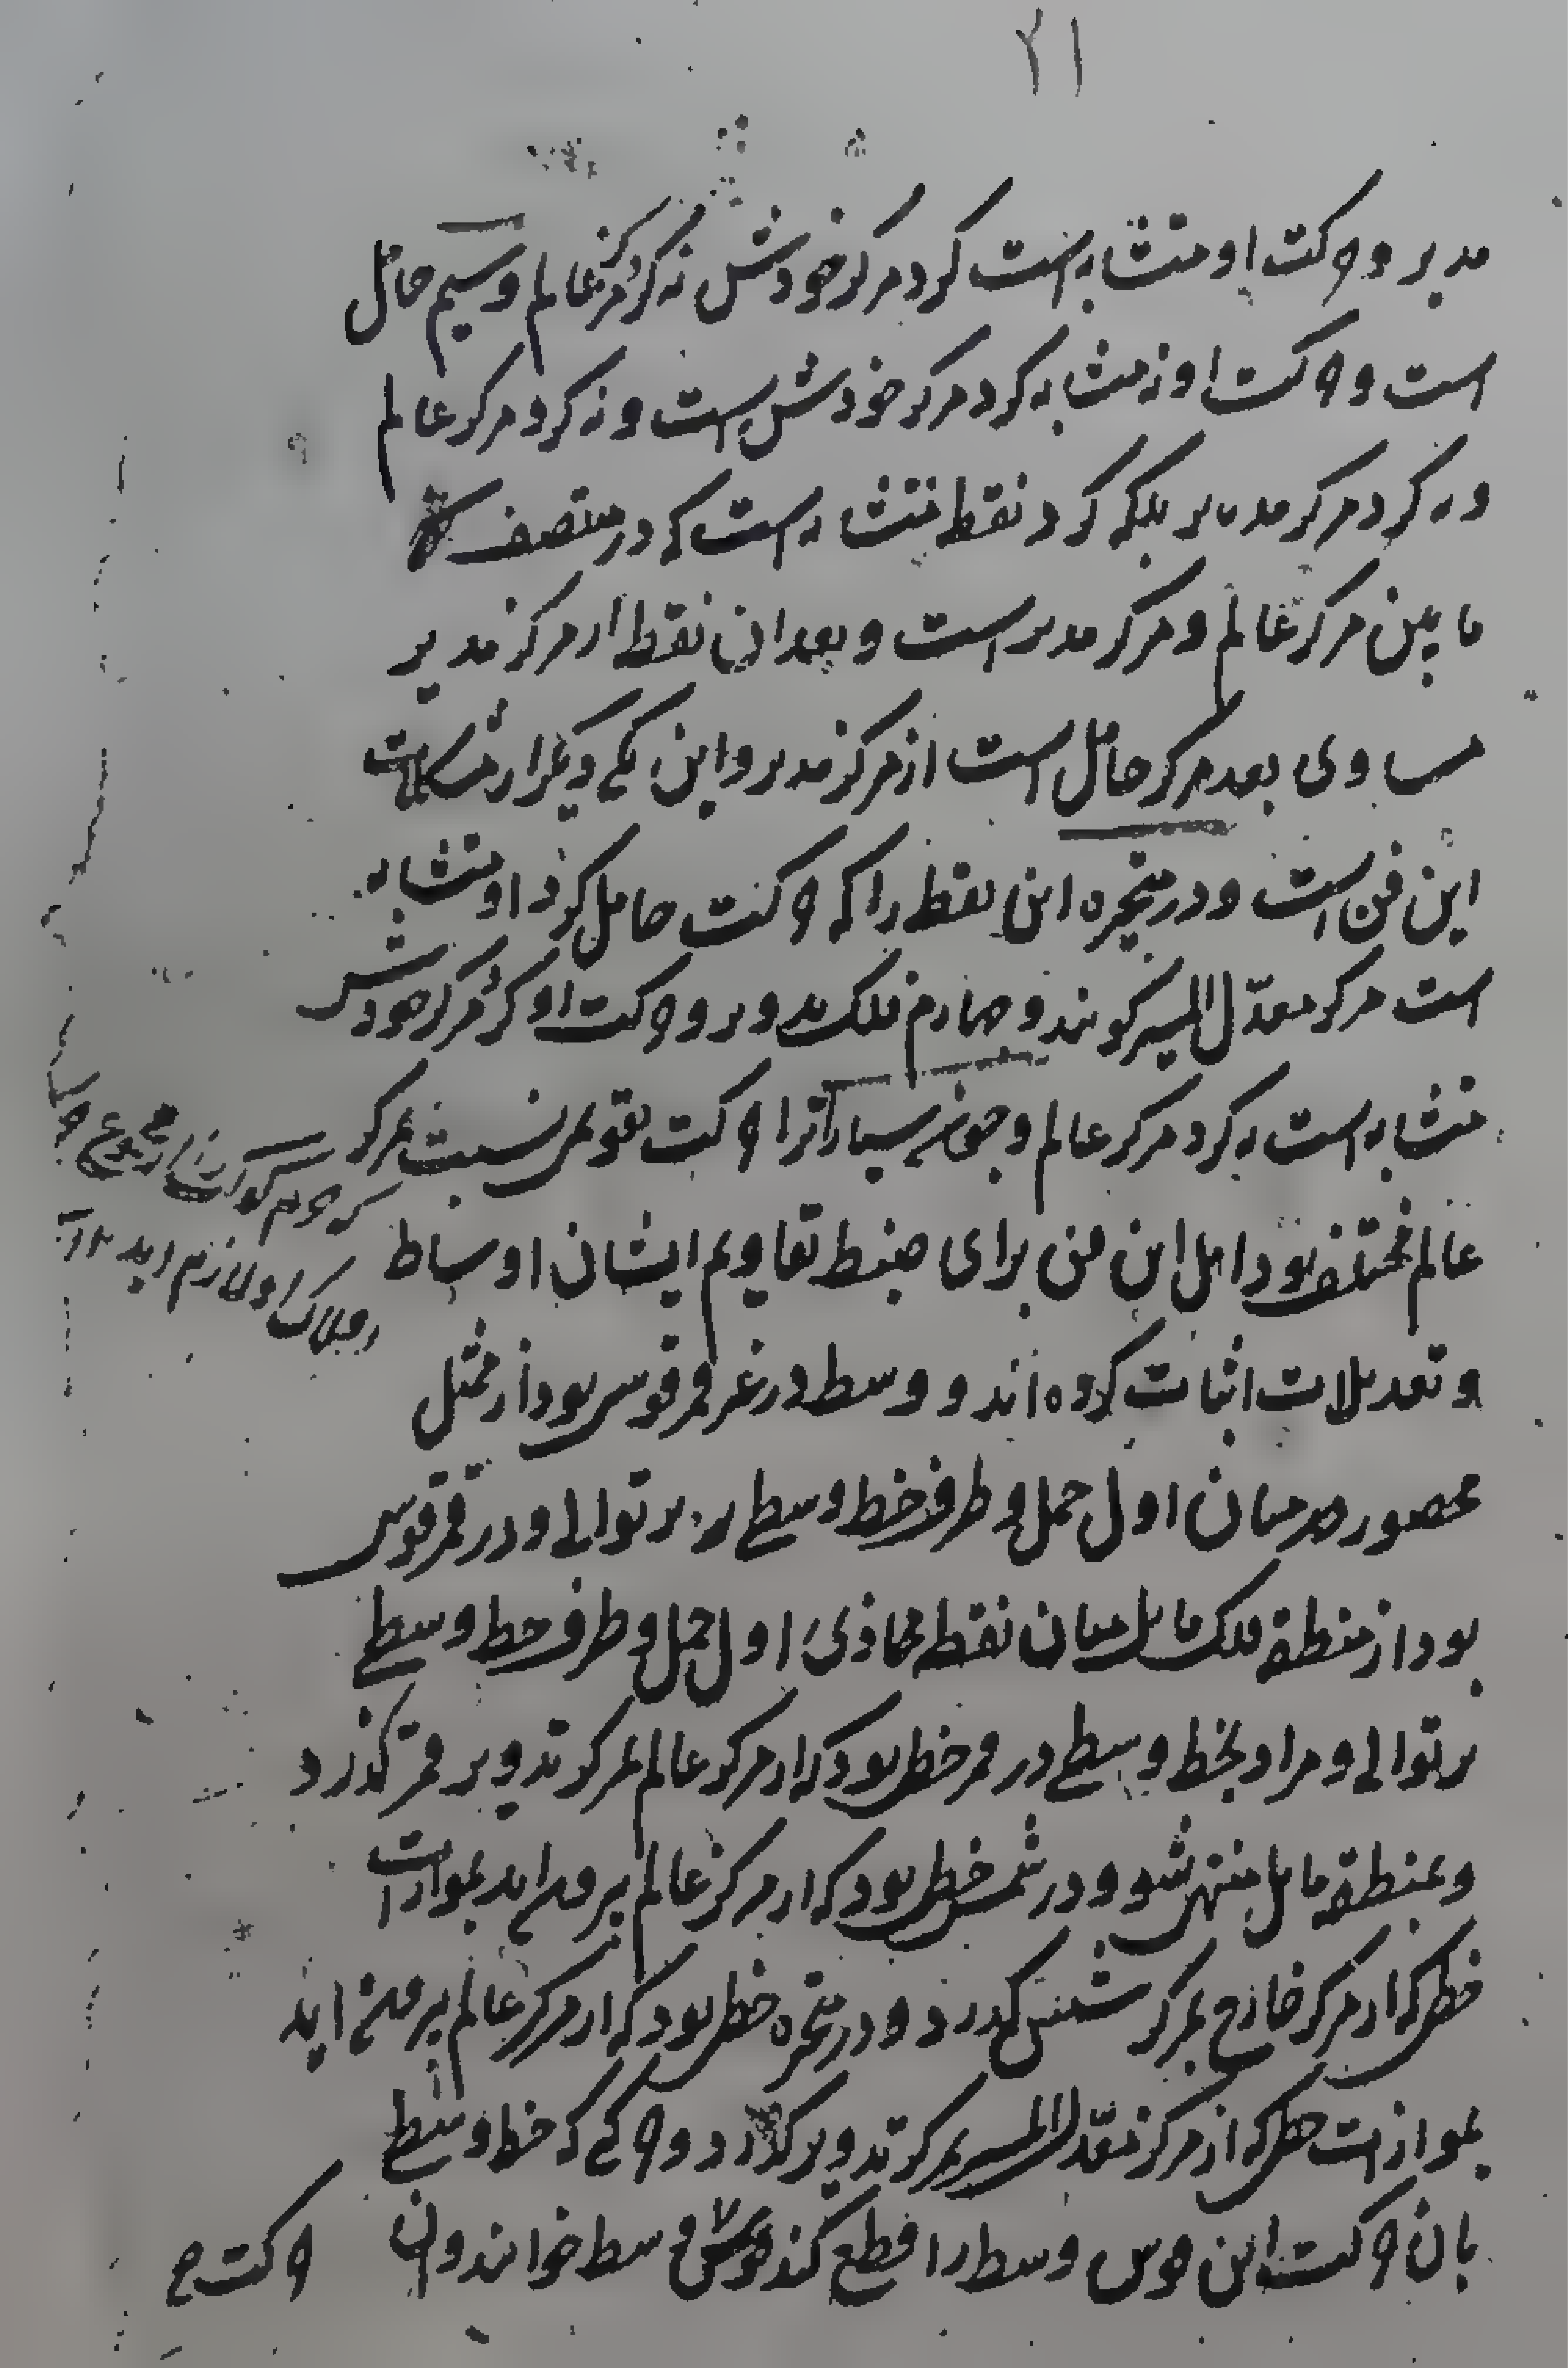 ۲۱
مدیر و حرکت او متشابه است گرد مرکز خودش نه گرد مرکز عالم و سیم حامل
است و حرکت او نه متشابه گرد مرکز خودش است و نه گرد مرکز عالم
و نه گرد مرکز مدیر بلکه گرد نقطه متشابه است که در منتصف
ما بین مرکز عالم و مرکز مدیر است و بعد ان نقطه از مرکز مدیر
مساوی بعد مرکز حامل است از مرکز مدیر و این یکی دیگر از مشکلات
این فن است و در متحیره این نقطه را که حرکت حامل گرد او متشابه
است مرکز معدّل المسیر گویند و چهارم فلک تدویر و حرکت او گرد مرکز خودش
متشابه است نه گرد مرکز عالم و چون سیارات را حرکت تقویمی نسبت بمرکز
عالم مختلف بود اهل این فن برای ضبط تقاویم ایشان اوساط
و تعدیلات اثبات کرده اند و وسط در غیر قمر قوسی بود از ممثل
محصور در میان اول حمل و طرف خط وسطی بر توالی و در قمر قوسی
بود از منطقه فلک مایل میان نقطه محاذی اول حمل و طرف خط وسطی
بر توالی و مراد بخط وسطی در قمر خطی بود که از مرکز عالم بمرکز تدویر قمر گذرد
و بمنطقه مایل منتهی شود و در شمس خطی بود که از مرکز عالم بیرون اید بموازات
خطی که از مرکز خارج بمرکز شمس گذرد و در متحیره خطی بود که از مرکز عالم بیرون اید
بموازات خطی که از مرکز معدّل المسیر بمرکز تدویر گذرد و حرکتی که خط وسطی
بان حرکت این قوس وسط را قطع کند وسط خوانند و ان
حرکت
که جرم کوکب را از مجموع
افلاک او لازم اید